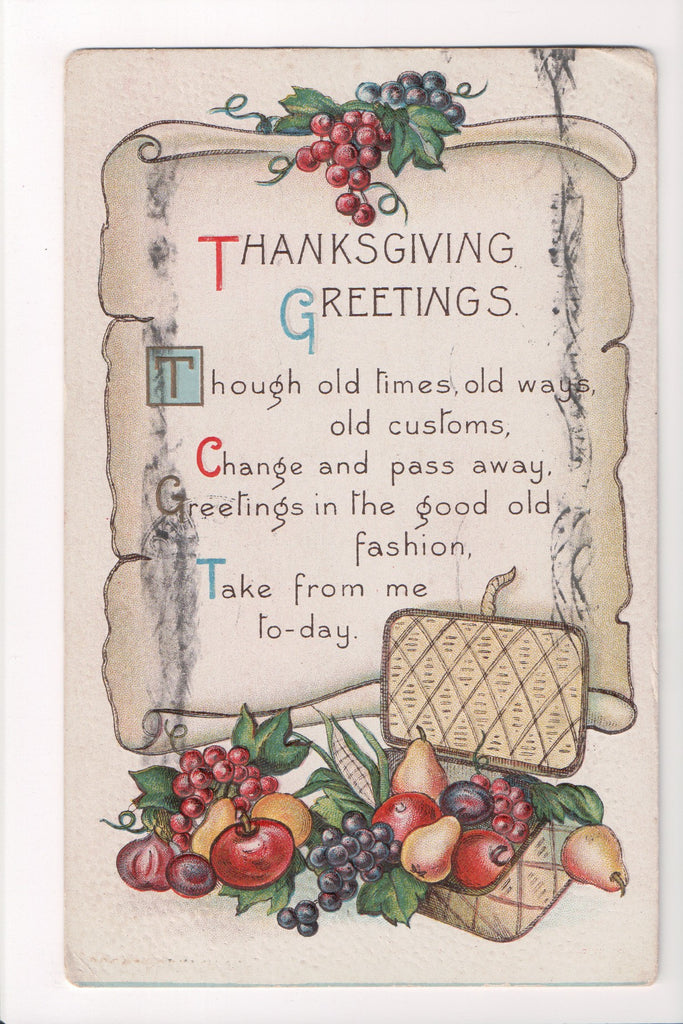 THANKSGIVING
GREETINGS.
Though old times, old ways,
old customs,
Change and pass away,
Greetings in the good old
fashion,
Take from me
to-day.